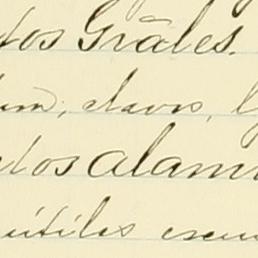 tos Gräles.
um, clavos, l
tos alam
útiles escu